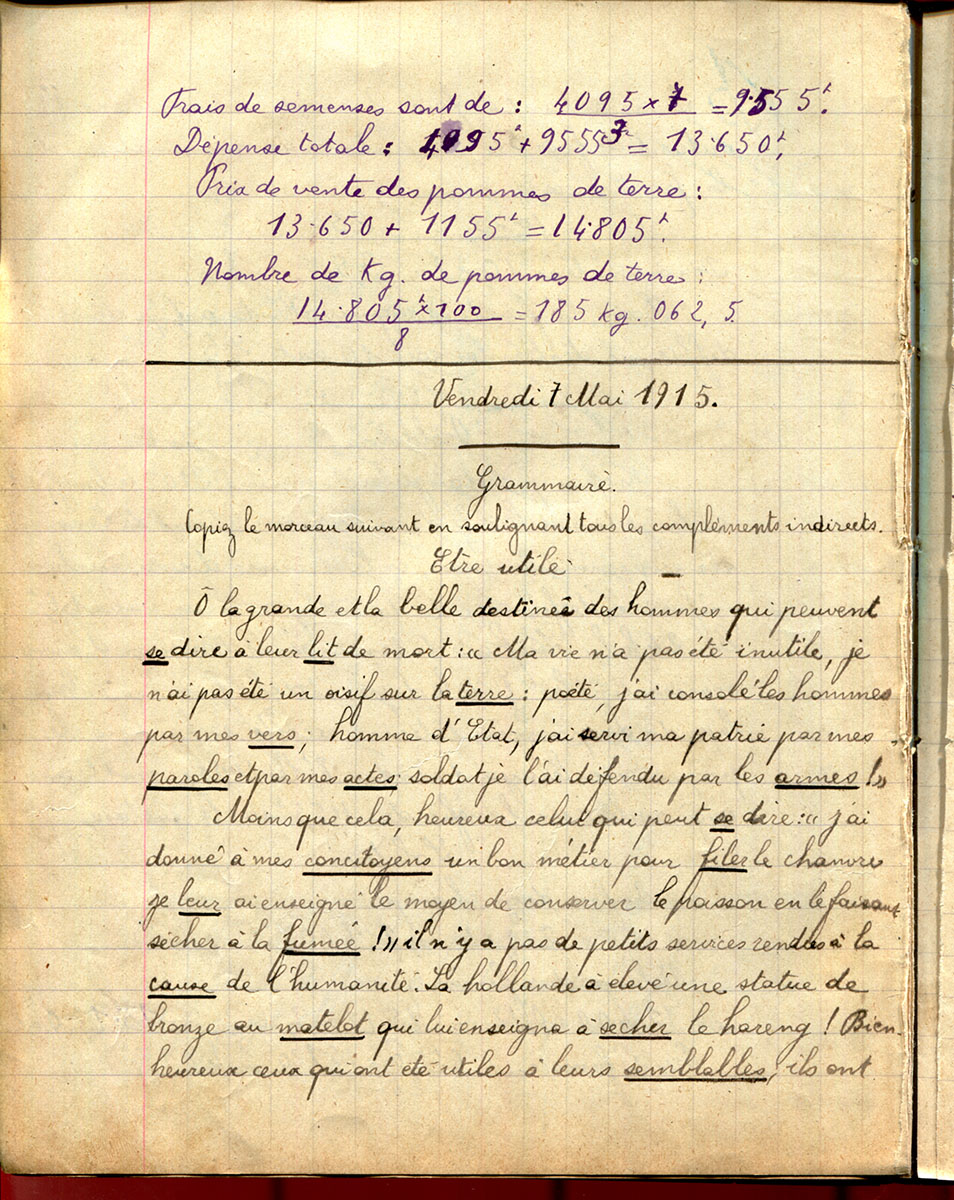 Frais de semenses sont de : 4095 x 7 = 9.555ᶠ.
Dépense totale : 4095ᶠ + 9555 = 13.650ᶠ,
Prix de vente des pommes de terre :
13.650 + 1155ᶠ = 14.805ᶠ.
Nombre de Kg. de pommes de terre :
14.805ᶠ x 100 = 185 kg. 062, 5.
8
Vendredi 7 Mai 1915.
Grammaire.
Copiez le morceau suivant en soulignant tous les compléments indirects.
Etre utile
Ô la grande et la belle destinée des hommes qui peuvent
se dire à leur lit de mort : « Ma vie n'a pas été inutile, je
n'ai pas été un oisif sur la terre : poète, j'ai consolé les hommes
par mes vers ; homme d'Etat, j'ai servi ma patrie par mes
paroles et par mes actes ; soldat je l'ai défendu par les armes ! »
Moins que cela, heureux celui qui peut se dire : « j'ai
donné à mes concitoyens un bon métier pour filer le chanvre
je leur ai enseigné le moyen de conserver le poisson en le faisant
sécher à la fumée ! » il n'y a pas de petits services rendus à la
cause de l'humanité. La hollande a élevé une statue de
bronze au matelot qui lui enseigna à sécher le hareng ! Bien-
heureux ceux qui ont été utiles à leurs semblables, ils ont